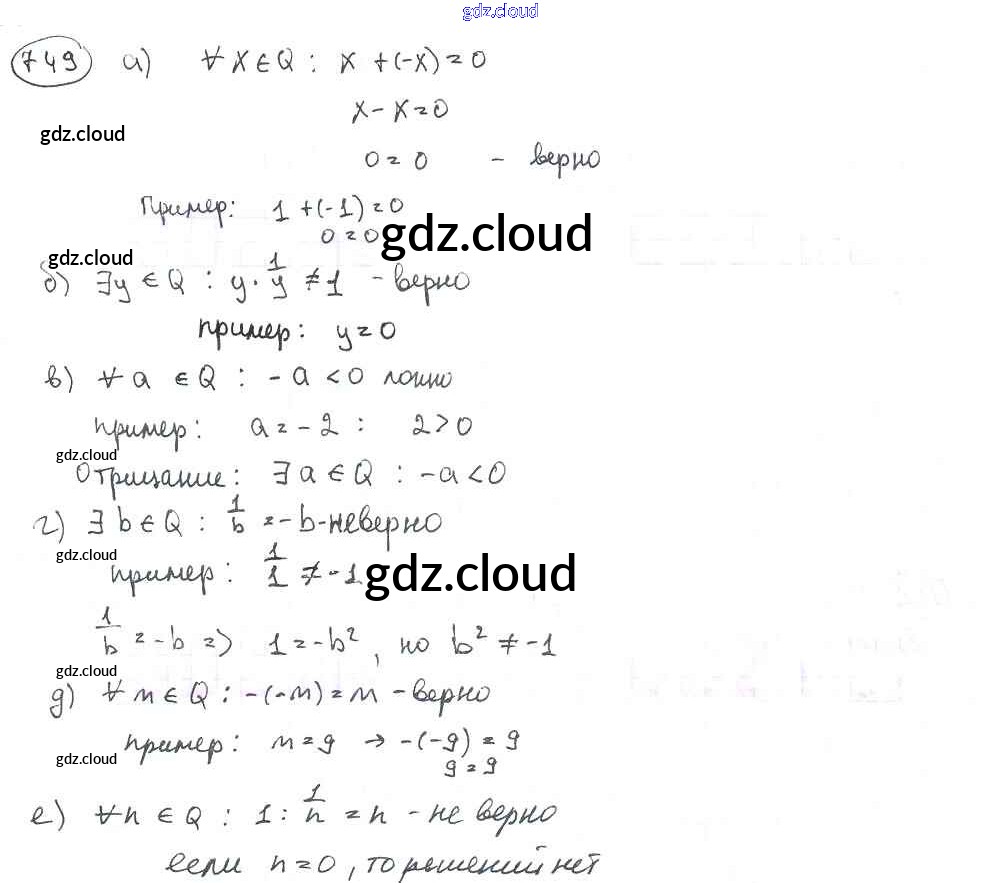 gdz.cloud
749 а) ∀ x ∈ Q : x + (-x) = 0
x - x = 0
gdz.cloud
0 = 0 - верно
Пример: 1 + (-1) = 0
0 = 0
gdz.cloud
gdz.cloud
б) ∃ y ∈ Q : y · 1/y ≠ 1 - верно
пример: y = 0
в) ∀ a ∈ Q : - a < 0 ложно
пример: a = - 2 : 2 > 0
gdz.cloud
Отрицание: ∃ a ∈ Q : - a < 0
г) ∃ b ∈ Q : 1/b = - b - неверно
gdz.cloud
пример: 1/1 ≠ - 1
gdz.cloud
1/b = - b => 1 = - b², но b² ≠ - 1
gdz.cloud
д) ∀ m ∈ Q : - (- m) = m - верно
пример: m = 9 → - (- 9) = 9
gdz.cloud
9 = 9
е) ∀ n ∈ Q : 1 : 1/n = n - не верно
если n = 0, то решений нет